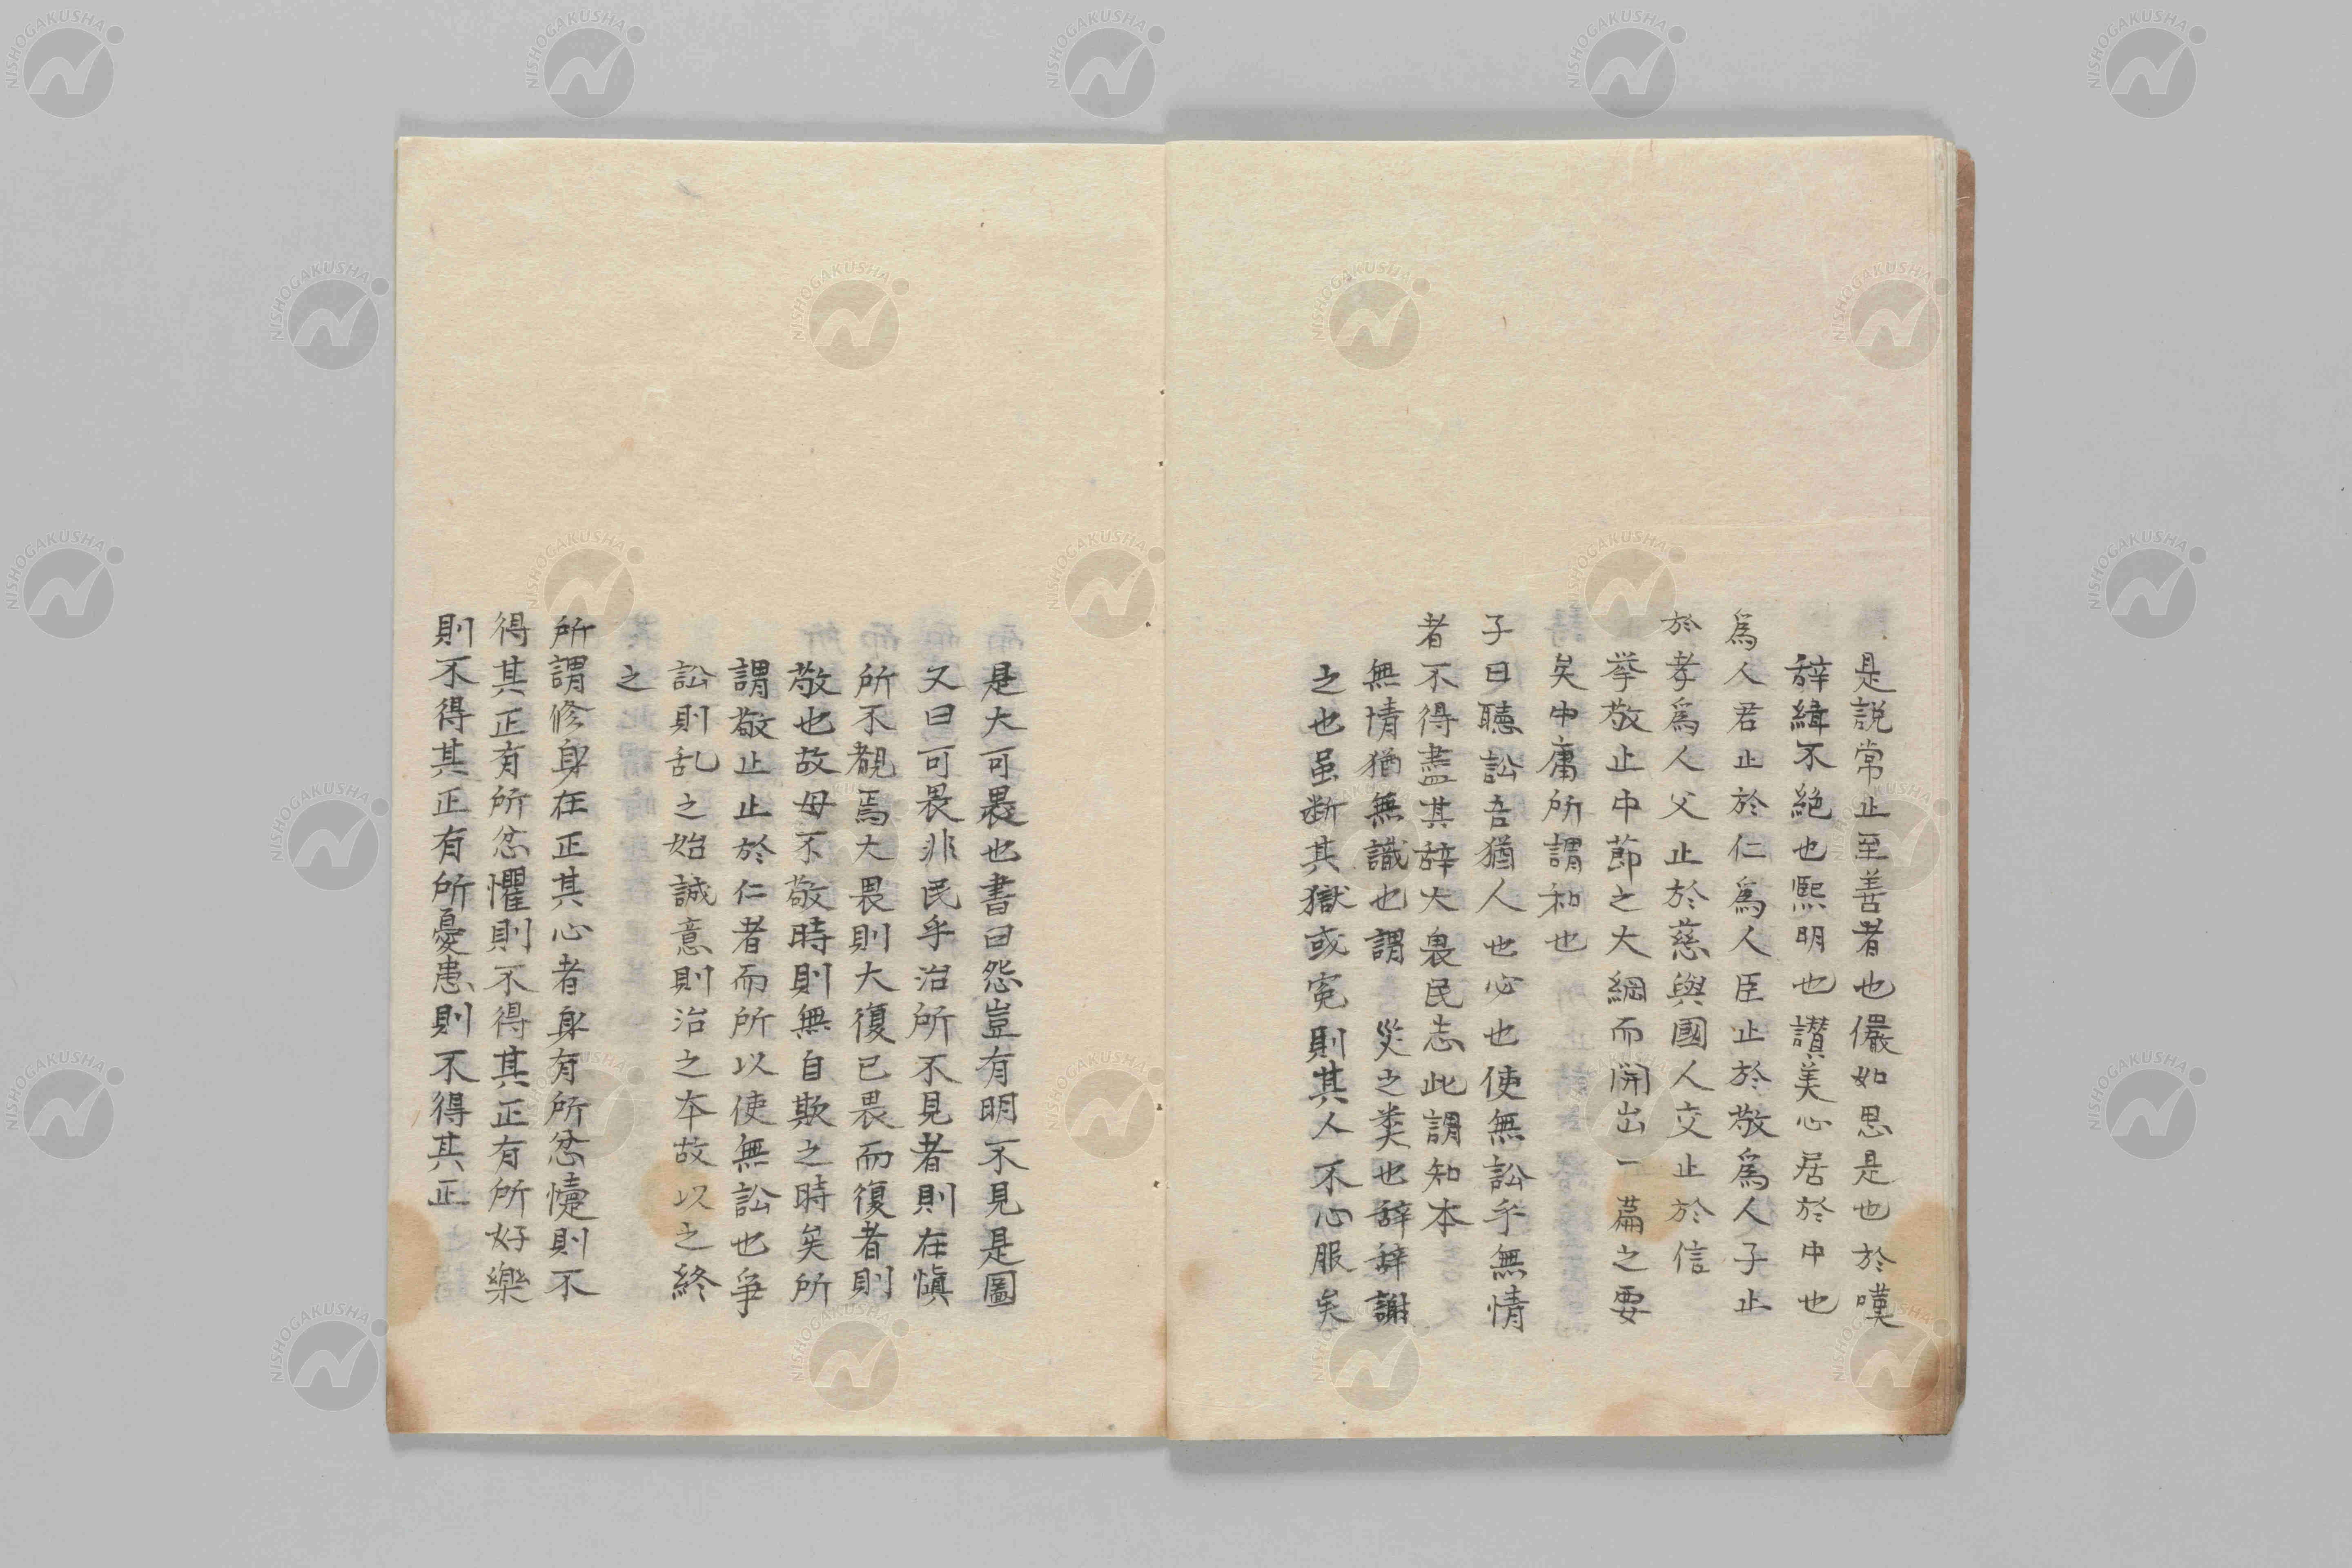 是説常止至善者也儼如思是也於嘆
辞緝不絶也熈明也讃美心居於中也
爲人君止於仁爲人臣止於敬爲人子止
於孝爲人父止於慈與國人交止於信
挙敬止中節之大綱而開出一篇之要
矣中庸所謂和也
子曰聴訟吾猶人也必也使無訟乎無情
者不得盡其辞大畏民志此謂知本
無情猶無識也謂 災之类也辞辞謝
之也虽断其獄或寃則其人不心服矣
是大可畏也書曰怨豈有明不見是圖
又曰可畏非民乎治所不見者則在愼
所不覩焉大畏則大復已畏而復者則
敬也故毋不敬時則無自欺之時矣所
謂敬止止於仁者而所以使無訟也爭
訟則乱之始誠意則治之本故以之終
之
所謂修身在正其心者身有所忿懥則不
得其正有所恐懼則不得其正有所好樂
則不得其正有所憂患則不得其正
NISHOGAKUSHA